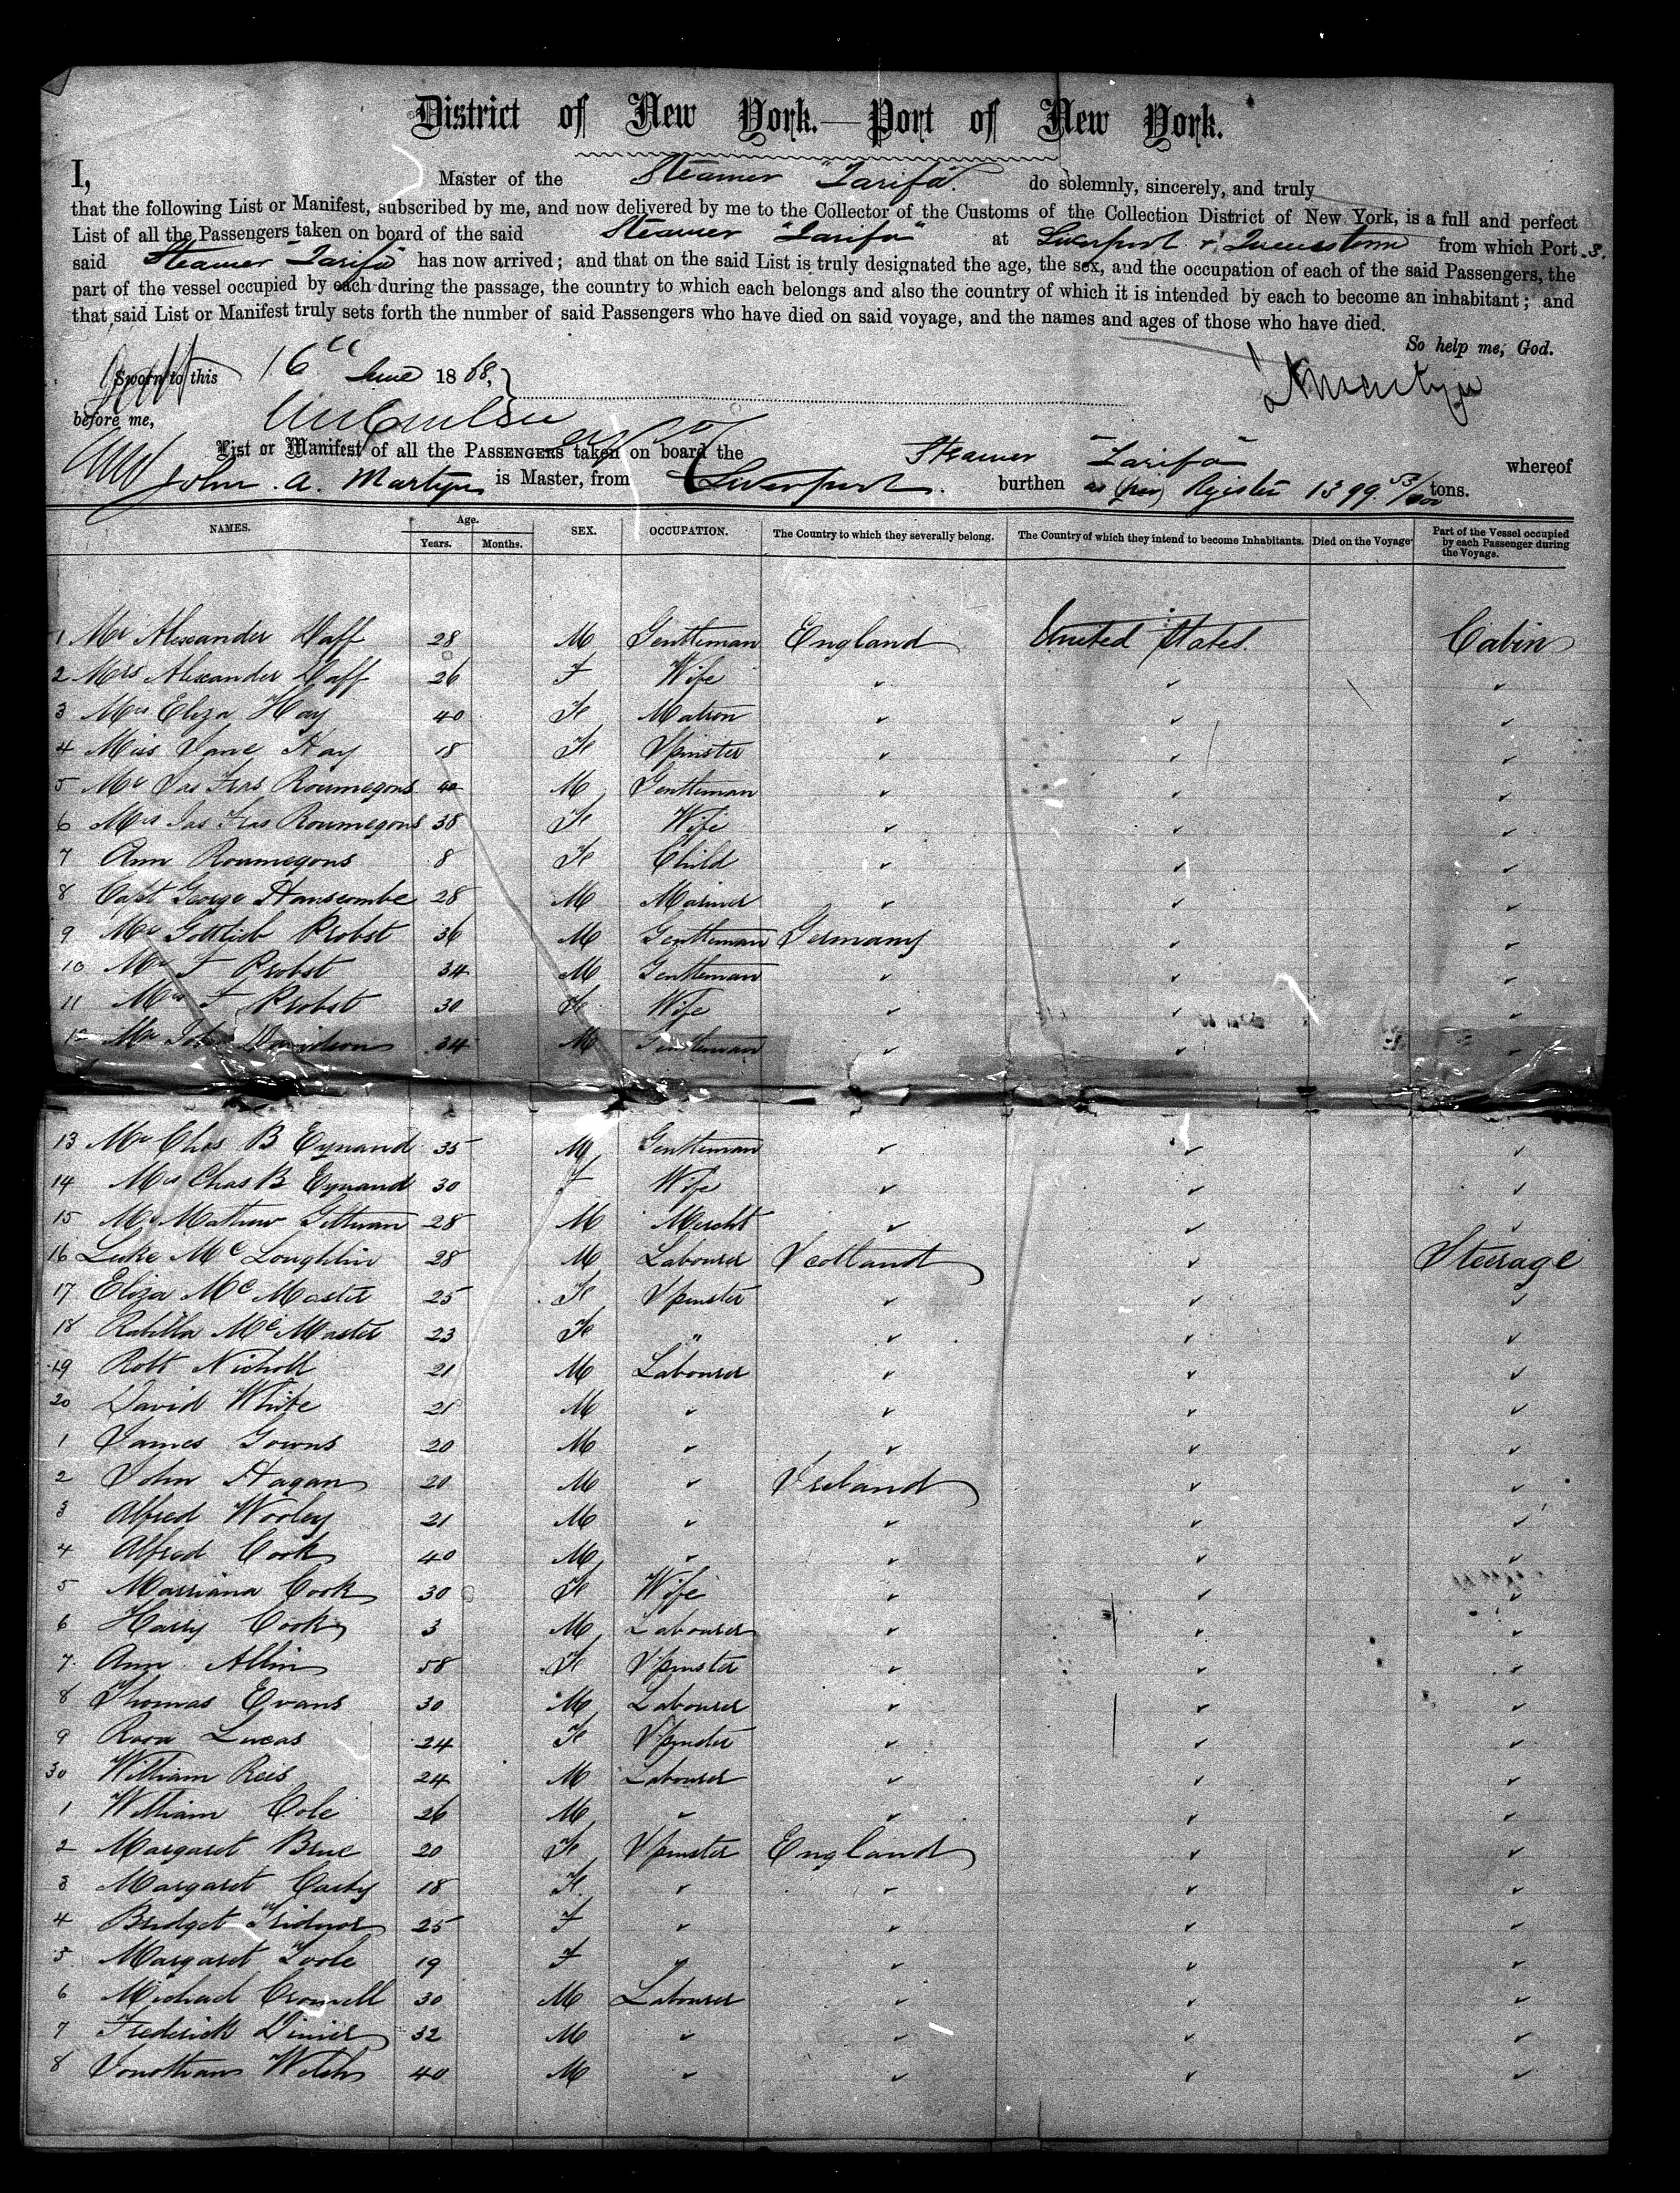 District of New York.—Port of New York.
I, Master of the Steamer "Tarifa" do solemnly, sincerely, and truly
that the following List or Manifest, subscribed by me, and now delivered by me to the Collector of the Customs of the Collection District of New York, is a full and perfect
List of all the Passengers taken on board of the said Steamer "Tarifa" at Liverpool & Queenstown from which Port.s.
said Steamer "Tarifa" has now arrived; and that on the said List is truly designated the age, the sex, and the occupation of each of the said Passengers, the
part of the vessel occupied by each during the passage, the country to which each belongs and also the country of which it is intended by each to become an inhabitant; and
that said List or Manifest truly sets forth the number of said Passengers who have died on said voyage, and the names and ages of those who have died.
So help me, God.
Sworn to this 16th June 1868,
before me,
List or Manifest of all the PASSENGERS taken on board the Steamer "Tarifa" whereof
John A. Martyn is Master, from Liverpool. burthen as (per) Register 1399 53/100 tons.
NAMES. Age. Years. Months. SEX. OCCUPATION. The Country to which they severally belong. The Country of which they intend to become Inhabitants. Died on the Voyage Part of the Vessel occupied by each Passenger during the Voyage.
1 Mr Alexander Daff 28 M Gentleman England United States. Cabin
2 Mrs Alexander Daff 26 F Wife ✓ ✓ ✓
3 Mrs Eliza Hay 40 Fe Matron ✓ ✓ ✓
4 Miss Jane Hay 18 Fe Spinster ✓ ✓ ✓
5 Mr Jas Fras Roumegons 40 M Gentleman ✓ ✓ ✓
6 Mrs Jas Fras Roumegons 38 Fe Wife ✓ ✓ ✓
7 Ann Roumegons 8 Fe Child ✓ ✓ ✓
8 Capt George Hanscombe 28 M Mariner ✓ ✓ ✓
9 Mr Gottlieb Probst 36 M Gentleman Germany ✓ ✓
10 Mr F Probst 34 M Gentleman ✓ ✓ ✓
11 Mrs F Probst 30 Fe Wife ✓ ✓ ✓
12 Mr John Davidson 34 M Gentleman ✓ ✓ ✓
13 Mr Chas B Eynaud 35 M Gentleman ✓ ✓ ✓
14 Mrs Chas B Eynaud 30 F Wife ✓ ✓ ✓
15 Mr Mathew Gittman 28 M Mercht ✓ ✓ ✓
16 Luke McLoughlin 28 M Labourer Scotland ✓ Steerage
17 Eliza McMaster 25 Fe Spinster ✓ ✓ ✓
18 McMaster 23 Fe " ✓ ✓ ✓
19 Robt Nicholl 21 M Labourer ✓ ✓ ✓
20 David White 21 M ✓ ✓ ✓ ✓
1 James Gowns 20 M ✓ ✓ ✓ ✓
2 John Hagan 20 M ✓ Ireland ✓ ✓
3 Alfred Worley 21 M ✓ ✓ ✓ ✓
4 Alfred Cook 40 M ✓ ✓ ✓ ✓
5 Marriana Cook 30 Fe Wife ✓ ✓ ✓
6 Harry Cook 3 M Labourer ✓ ✓ ✓
7 Ann Allin 58 Fe Spinster ✓ ✓ ✓
8 Thomas Evans 30 M Labourer ✓ ✓ ✓
9 Rosa Lucas 24 Fe Spinster ✓ ✓ ✓
30 William Rees 24 M Labourer ✓ ✓ ✓
1 William Cole 26 M ✓ ✓ ✓ ✓
2 Margaret Brue 20 Fe Spinster England ✓ ✓
3 Margaret Carty 18 Fe ✓ ✓ ✓ ✓
4 Bridget 25 F ✓ ✓ ✓ ✓
5 Margaret Toole 19 F " ✓ ✓ ✓
6 Michael Cromell 30 M Labourer ✓ ✓ ✓
7 Frederick Dinier 32 M ✓ ✓ ✓ ✓
8 Jonathan Welch 40 M ✓ ✓ ✓ ✓